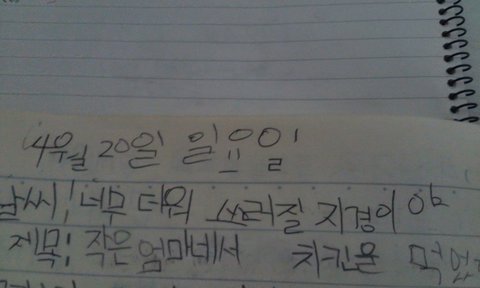 4월 20일 일요일
날씨! 너무 더워 쓰러질 지경이야
제목! 작은 엄마네서 치킨을